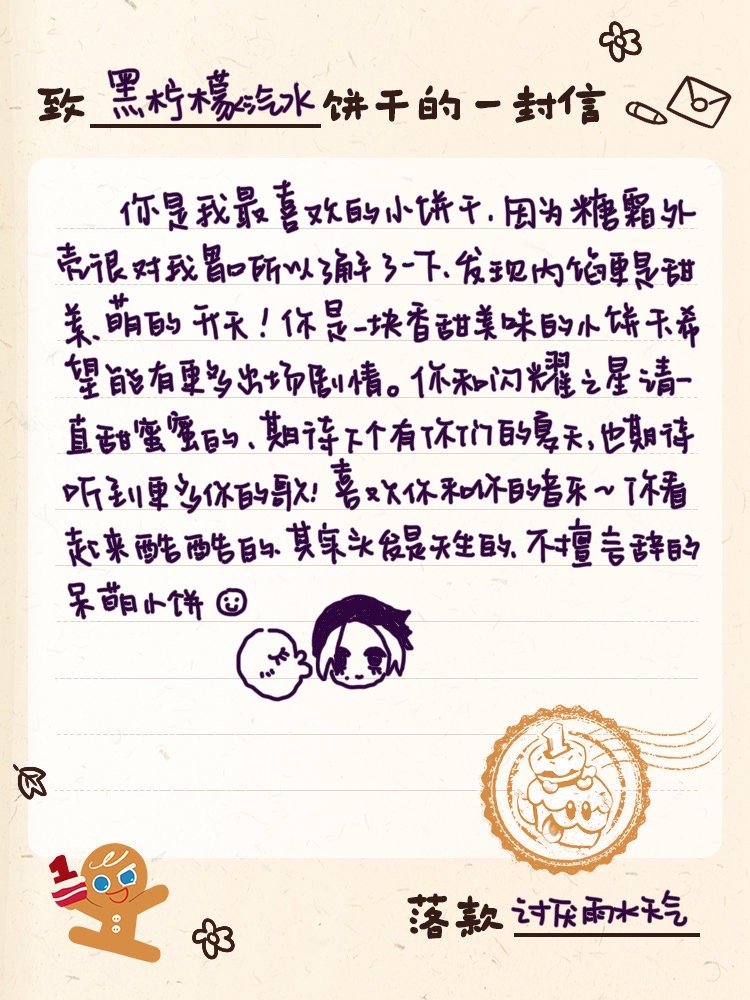 致 黑柠檬汽水 饼干的一封信
你是我最喜欢的小饼干,因为糖霜外
壳很对我胃口所以了解了一下,发现内馅更是甜
美、萌的 升天!你是一块香甜美味的小饼干,希
望能有更多出场剧情。你和闪耀之星请一
直甜蜜蜜的、期待下个有你们的夏天,也期待
听到更多你的歌!喜欢你和你的音乐~你看
起来酷酷的、其实头发是天生的、不擅言辞的
呆萌小饼
1
1
落款 讨厌雨水天气